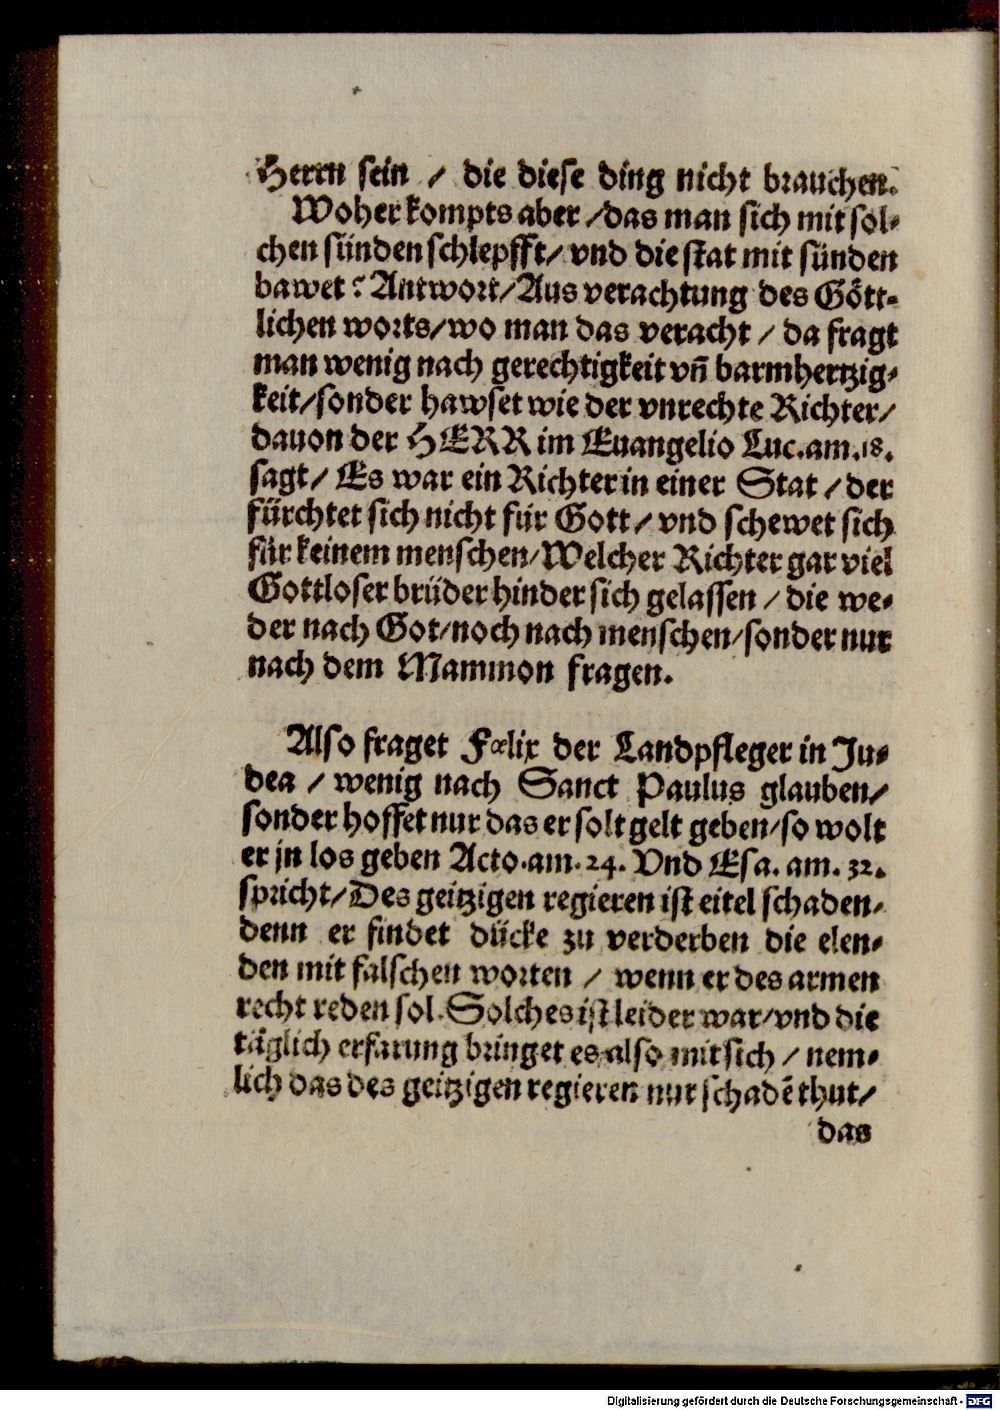 Herrn sein / die diese ding nicht brauchen.
Woher kompts aber / das man sich mit sol⸗
chen sünden schlepfft / vnd die stat mit sünden
bawet? Antwort / Aus verachtung des Gött⸗
lichen worts / wo man das veracht / da fragt
man wenig nach gerechtigkeit vñ barmhertzig⸗
keit / sonder hawset wie der vnrechte Richter /
dauon der HERR im Euangelio Luc. am. 18.
sagt / Es war ein Richter in einer Stat / der
fürchtet sich nicht für Gott / vnd schewet sich
für keinem menschen / Welcher Richter gar viel
Gottloser brüder hinder sich gelassen / die we⸗
der nach Got / noch nach menschen / sonder nur
nach dem Mammon fragen.
Also fraget Fœlix der Landpfleger in Ju⸗
dea / wenig nach Sanct Paulus glauben /
sonder hoffet nur das er solt gelt geben / so wolt
er jn los geben Acto. am. 24. Vnd Esa. am. 32.
spricht / Des geitzigen regieren ist eitel schaden /
denn er findet dücke zu verderben die elen⸗
den mit falschen worten / wenn er des armen
recht reden sol. Solches ist leider war / vnd die
täglich erfarung bringet es also mit sich / nem⸗
lich das des geitzigen regieren nur schadē thut /
das
Digitalisierung gefördert durch die Deutsche Forschungsgemeinschaft - DFG